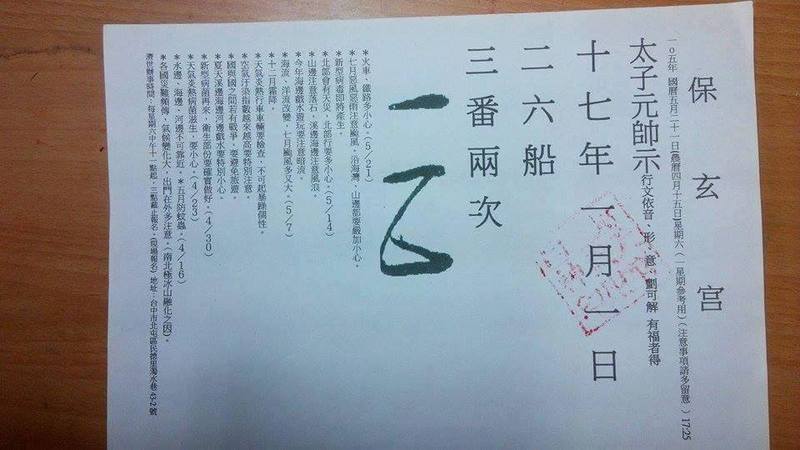 保玄宮
一o五年 國曆五月二十一日(農曆四月十五日)星期六(一星期參考用)(注意事項請多留意)17:25
太子元帥示 行文依音、形、意、劃可解 有福者得
十七年一月一日
二六船
三番兩次
*火車、鐵路多小心。(5/21)
*七月惡風惡雨注意颱風。沿海灣、山邊都要嚴加小心。
*新型病毒即將產生。
*北部會有大災，北部行要多小心。(5/14)
*山邊注意落石，溪邊海邊注意風浪。
*今年海邊戲水遊玩要注意暗流。
*海流、洋流改變，七月颱風多又大。(5/7)
*十二月霜降。
*天氣炎熱行車車輛要檢查，不可起暴躁個性。
*空氣汙染指數越來越高要特別注意。
*國與國之間若有戰爭，要避免旅遊。
*夏天溪邊海邊河邊戲水要特別小心。
*新型病菌再來，衛生部份要確實做好。(4/30)
*天氣炎熱病菌滋生，要小心。(4/23)
*水邊、海邊、河邊不可靠近。*五月防蚊蟲。(4/16)
*各國災難頻傳，氣候變化大，出門在外多注意。(南北極冰山融化之因)。
濟世辦事時間：每星期六中午十二點起，三點截止報名。(現場報名) 地址：台中市北屯區民德里濁水巷43-2號